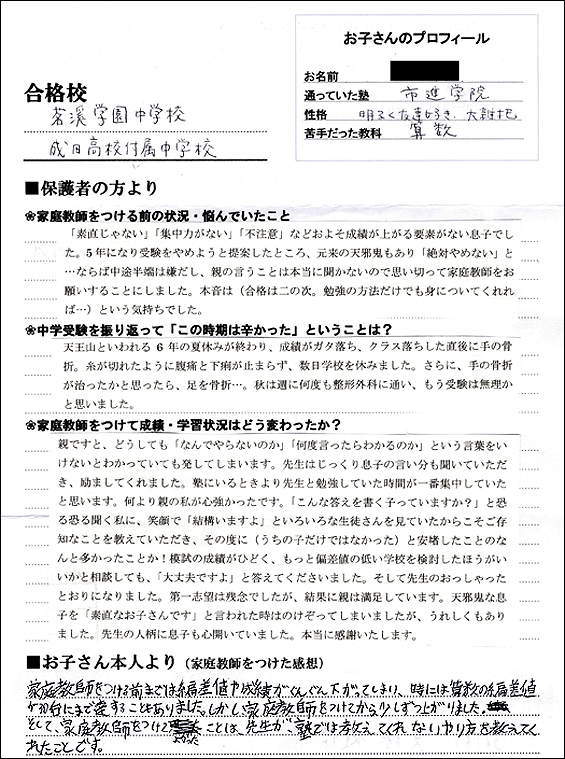 お子さんのプロフィール
お名前
通っていた塾 市進学院
性格 明るく友達好き・大雑把
苦手だった教科 算数
合格校
茗溪学園中学校
成田高校付属中学校
■保護者の方より
❀家庭教師をつける前の状況・悩んでいたこと
「素直じゃない」「集中力がない」「不注意」などおよそ成績が上がる要素がない息子でし
た。5年になり受験をやめようと提案したところ、元来の天邪鬼もあり「絶対やめない」と
…ならば中途半端は嫌だし、親の言うことは本当に聞かないので思い切って家庭教師をお
願いすることにしました。本音は（合格は二の次。勉強の方法だけでも身についてくれれ
ば…）という気持ちでした。
❀中学受験を振り返って「この時期は辛かった」ということは？
天王山といわれる 6 年の夏休みが終わり、成績がガタ落ち、クラス落ちした直後に手の骨
折。糸が切れたように腹痛と下痢が止まらず、数日学校を休みました。さらに、手の骨折
が治ったかと思ったら、足を骨折…。秋は週に何度も整形外科に通い、もう受験は無理か
と思いました。
❀家庭教師をつけて成績・学習状況はどう変わったか？
親ですと、どうしても「なんでやらないのか」「何度言ったらわかるのか」という言葉をい
けないとわかっていても発してしまいます。先生はじっくり息子の言い分も聞いていただ
き、励ましてくれました。塾にいるときより先生と勉強していた時間が一番集中していた
と思います。何より親の私が心強かったです。「こんな答えを書く子っていますか？」と恐
る恐る聞く私に、笑顔で「結構いますよ」といろいろな生徒さんを見ていたからこそご存
知なことを教えていただき、その度に（うちの子だけではなかった）と安堵したことのな
んと多かったことか！模試の成績がひどく、もっと偏差値の低い学校を検討したほうがい
いかと相談しても、「大丈夫ですよ」と答えてくださいました。そして先生のおっしゃった
とおりになりました。第一志望は残念でしたが、結果に親は満足しています。天邪鬼な息
子を「素直なお子さんです」と言われた時はのけぞってしまいましたが、うれしくもあり
ました。先生の人柄に息子も心開いていました。本当に感謝いたします。
■お子さん本人より（家庭教師をつけた感想）
家庭教師をつける前までは偏差値や成績がぐんぐん下がってしまい、時には算数の偏差値
が30台にまで達することもありました。しかし、家庭教師をつけてから少しずつ上がりました。
そして、家庭教師をつけてよかったことは、先生が、塾では教えてくれないやり方を教えてく
れたことです。